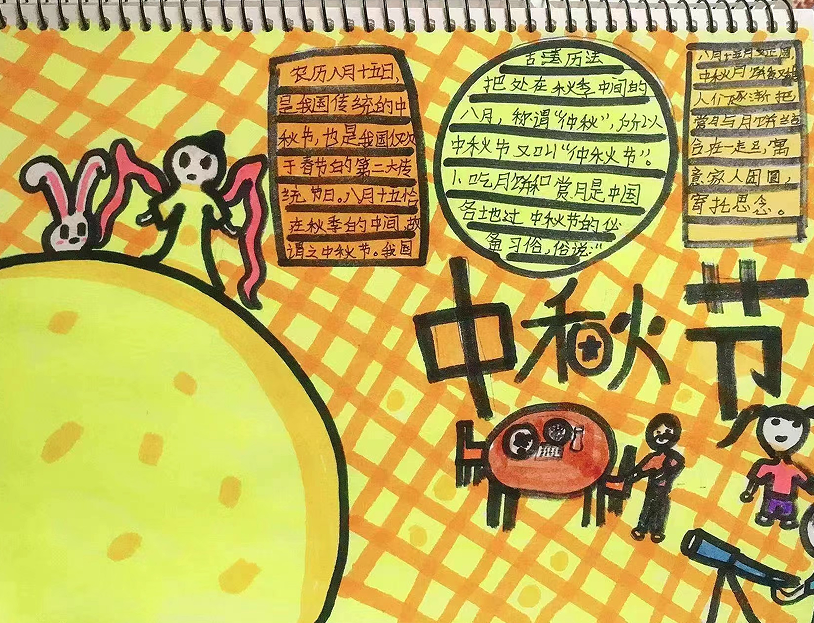 农历八月十五日,
是我国传统的中
秋节,也是我国仅次
于春节的第二大传
统节日。八月十五恰
在秋季的中间,故
谓之中秋节。我国
古漢历法
把处在秋季中间的
八月,称谓“仲秋”,所以
中秋节又叫“仲秋节”。
吃月饼和赏月是中国
各地过中秋节的必
备习俗,俗说:“
八月十五月正圆,
中秋月饼香又甜
人们逐渐把
赏月与月饼结
合在一起,寓
意家人团圆,
寄托思念。
中秋节